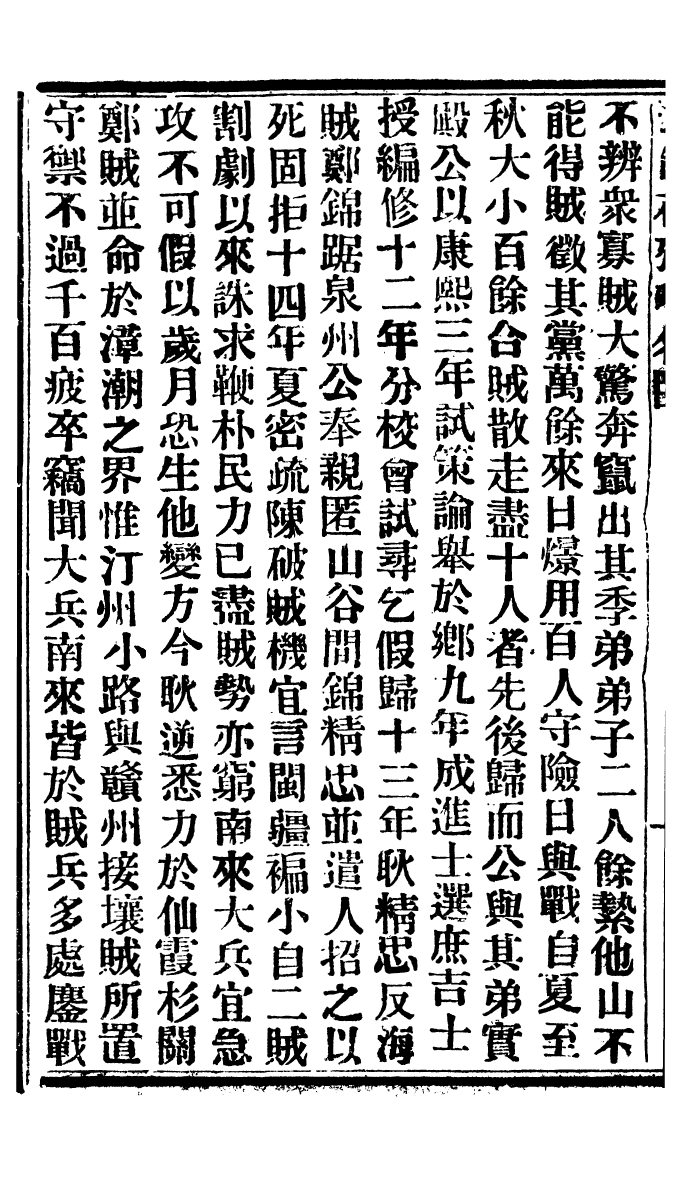 不辨衆寡賊大驚奔竄出其季弟弟子二人餘縶他山不
能得賊徵其黨萬餘來日爆用百人守險日與戰自夏至
秋大小百餘合賊散走盡十人者先後歸而公與其弟實
殿公以康熙三年試策論舉於鄉九年成進士選庶吉士
授編修十二年分校會試尋乞假歸十三年耿精忠反海
賊鄭錦踞泉州公奉親匿山谷間錦精忠並遣人招之以
死固拒十四年夏密疏陳破賊機宜言閩疆褊小自二賊
割劇以來誅求鞭朴民力已盡賊勢亦窮南來大兵宜急
攻不可假以歲月恐生他變方今耿逆悉力於仙霞杉關
鄭賊並命於漳潮之界惟汀州小路與贛州接壤賊所置
守禦不過千百疲卒竊聞大兵南來皆於賊兵多處鏖戰